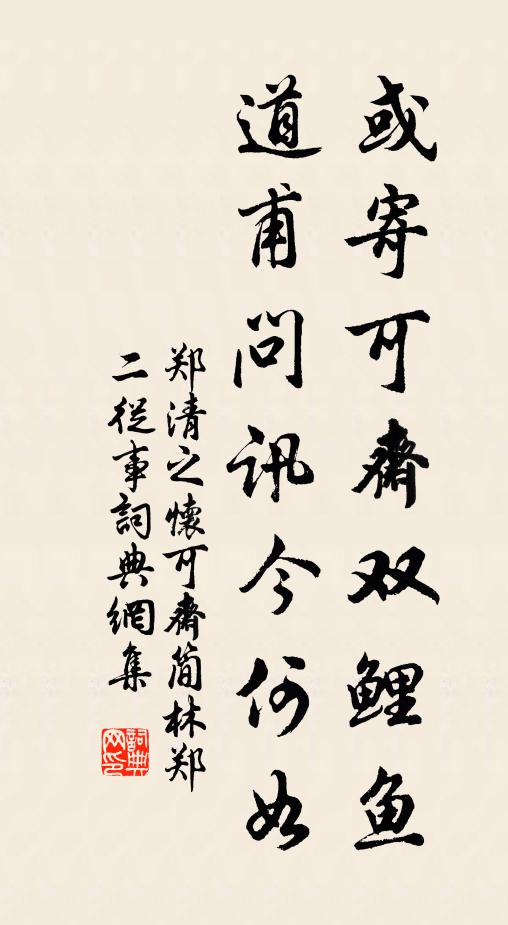 或寄可斋双鲤鱼
道甫问讯今何如
郑清之怀可斋简林郑
二从事词典网集
词典网印